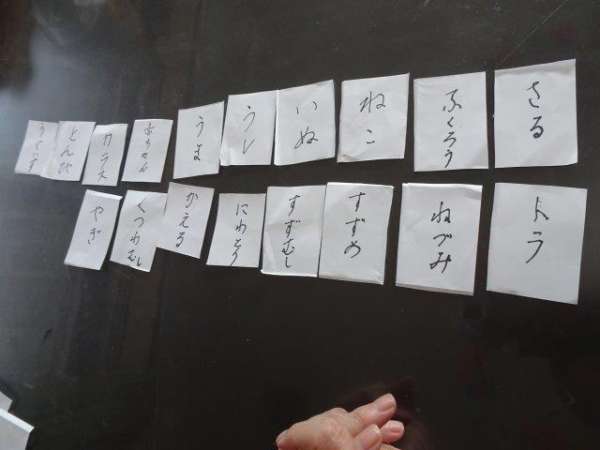 さる
ふくろう
ねこ
いぬ
うし
うま
カラス
とんび
トラ
ねづみ
すずめ
すずむし
にわとり
かえる
くつわむし
やぎ